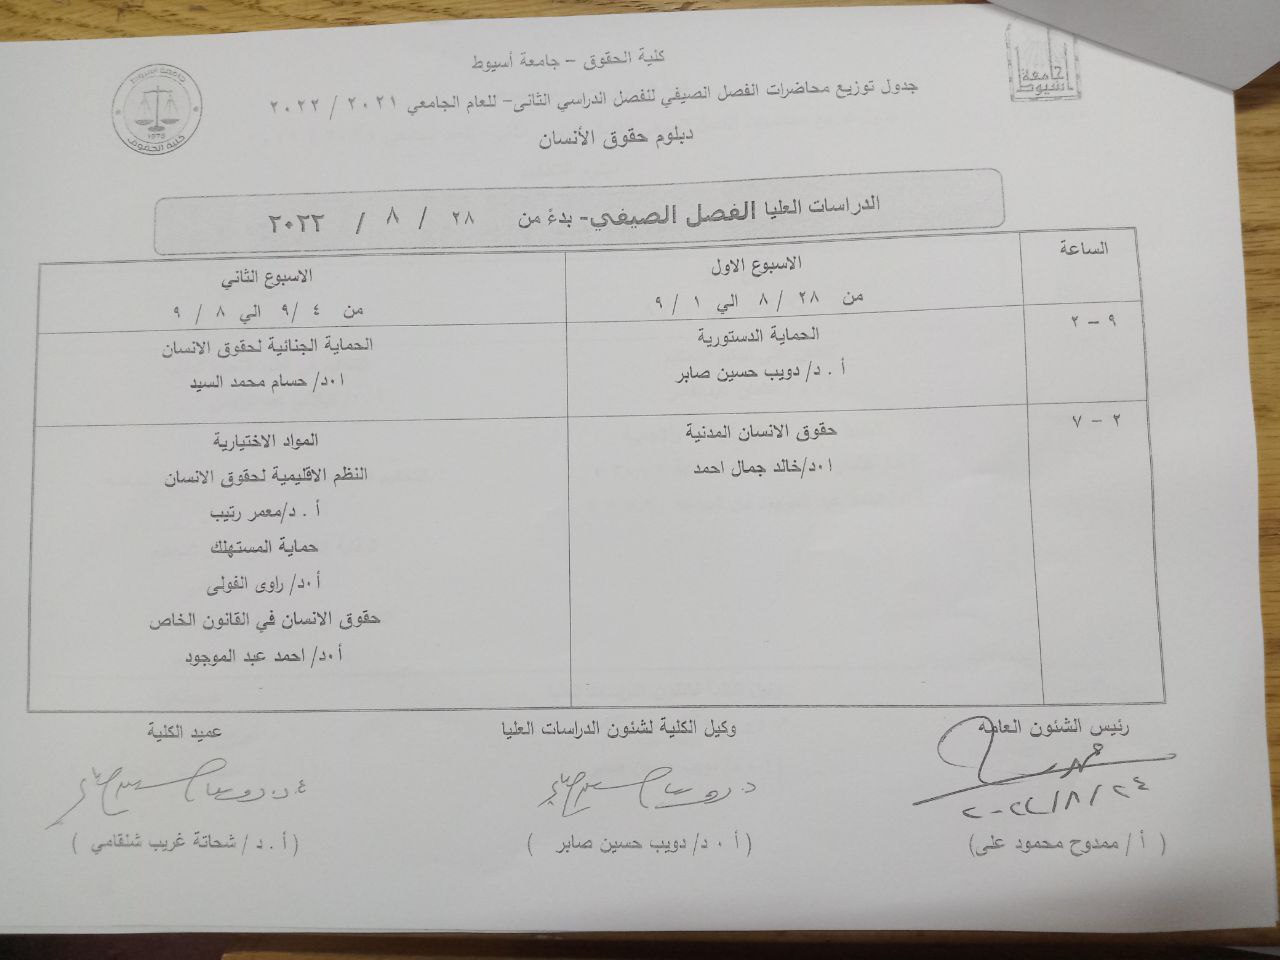 كلية الحقوق - جامعة أسيوط
جدول توزيع محاضرات الفصل الصيفي للفصل الدراسي الثانى- للعام الجامعي ٢٠٢١ / ٢٠٢٢
دبلوم حقوق الأنسان
جامعة اسيوط
1975
كلية الحقوق
الدراسات العليا الفصل الصيفي- بدءً من ٢٨ / ٨ / ٢٠٢٢
الساعة
الاسبوع الاول
من ٢٨ / ٨ الي ١ / ٩
الاسبوع الثاني
من ٤ /٩ الي ٨ / ٩
٩ – ٢
الحماية الدستورية
أ . د/ دويب حسين صابر
الحماية الجنائية لحقوق الانسان
ا٠د/ حسام محمد السيد
٢ – ٧
حقوق الانسان المدنية
ا٠د/خالد جمال احمد
المواد الاختيارية
النظم الاقليمية لحقوق الانسان
أ . د/معمر رتيب
حماية المستهلك
أ٠د/ راوى الفولى
حقوق الانسان في القانون الخاص
أ٠د/ احمد عبد الموجود
رئيس الشئون العامه
٢٠٢٢/٨/٢٤
( أ / ممدوح محمود على)
وكيل الكلية لشئون الدراسات العليا
( أ ٠ د/ دويب حسين صابر )
عميد الكلية
( أ . د / شحاتة غريب شلقامي )